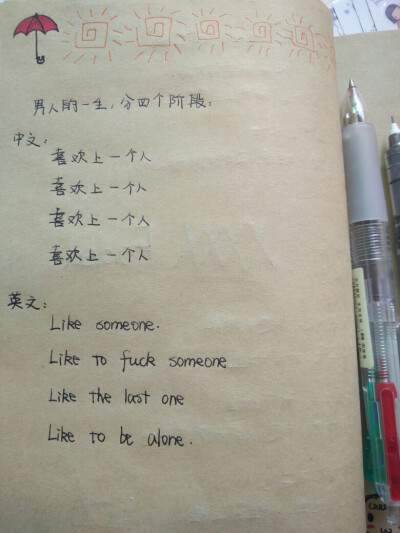 男人的一生，分四个阶段：
中文：
喜欢上一个人
喜欢上一个人
喜欢上一个人
喜欢上一个人
英文：
Like someone.
Like to fuck someone
Like the last one
Like to be alone.